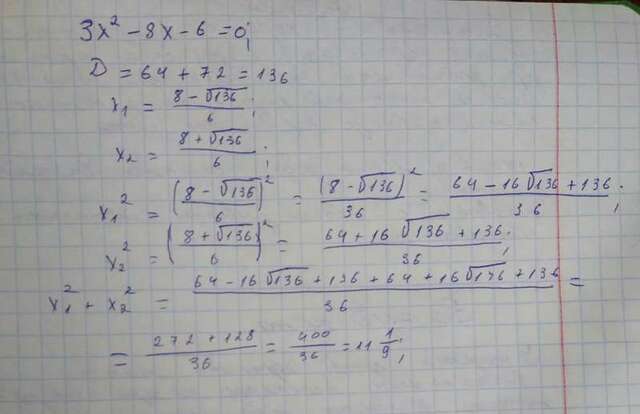 3x² - 8x - 6 = 0;
D = 64 + 72 = 136
x₁ = (8 - √136)/6;
x₂ = (8 + √136)/6;
x₁² = ((8 - √136)/6)² = (8 - √136)²/36 = (64 - 16√136 + 136)/36;
x₂² = ((8 + √136)/6)² = (64 + 16√136 + 136)/36;
x₁² + x₂² = (64 - 16√136 + 136 + 64 + 16√136 + 136)/36 =
= (272 + 128)/36 = 400/36 = 11 1/9;